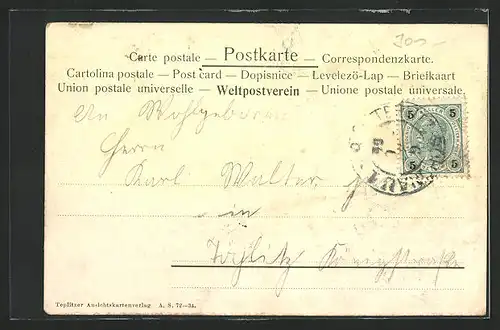 Carte postale — Postkarte — Correspondenzkarte.
Cartolina postale — Post card — Dopisnice — Levelezö-Lap — Briefkaart
Union postale universelle — Weltpostverein — Unione postale universale.
An Wohlgeboren
Herrn
Karl Walter
in
Teplitz Königstrasse
5 5
5 5
Teplitzer Ansichtskartenverlag A. S. 72—34.